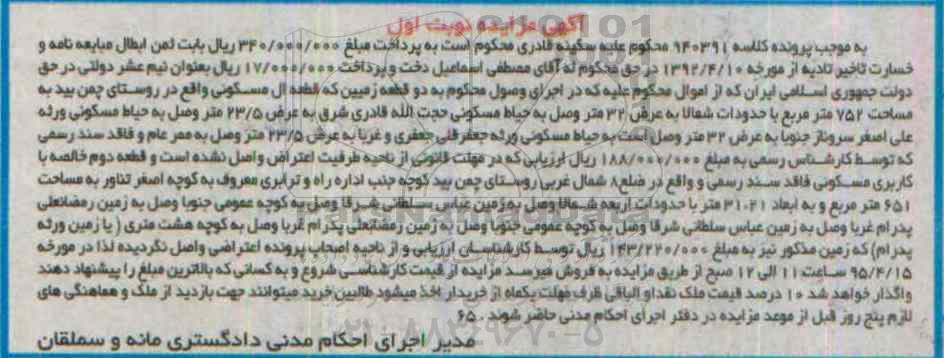 آگهی مزایده نوبت اول
به موجب پرونده کلاسه ۹۴۰۳۹۱ محکوم علیه سکینه قادری محکوم است به پرداخت مبلغ ۳۴۰/۰۰۰/۰۰۰ ریال بابت ثمن ابطال مبایعه نامه و
خسارت تاخیر تادیه از مورخه ۱۳۹۲/۴/۱۰ در حق محکوم له آقای مصطفی اسماعیل دخت و پرداخت ۱۷/۰۰۰/۰۰۰ ریال بعنوان نیم عشر دولتی در حق
دولت جمهوری اسلامی ایران که از اموال محکوم علیه که در اجرای وصول محکوم به دو قطعه زمین که قطعه ال مسکونی واقع در روستای چمن بید به
مساحت ۷۵۲ متر مربع با حدودات شمالا به عرض ۳۲ متر وصل به حیاط مسکونی حجت الله قادری شرق به عرض ۲۳/۵ متر وصل به حیاط مسکونی ورثه
علی اصغر سروناز جنوبا به عرض ۳۲ متر وصل است به حیاط مسکونی ورثه جعفر قلی جعفری و غربا به عرض ۲۳/۵ متر وصل به ممر عام و فاقد سند رسمی
که توسط کارشناس رسمی به مبلغ ۱۸۸/۰۰۰/۰۰۰ ریال ارزیابی که در مهلت قانونی از ناحیه طرفیت اعتراض واصل نشده است و قطعه دوم خالصه با
کاربری مسکونی فاقد سند رسمی و واقع در ضلع۸ شمال غربی روستای چمن بید کوچه جنب اداره راه و ترابری معروف به کوچه اصغر تناور به مساحت
۶۵۱ متر مربع و به ابعاد ۳۱.۲۱ متر با حدودات اربعه شمالا وصل به زمین عباس سلطانی شرقا وصل به کوچه عمومی جنوبا وصل به زمین رمضانعلی
پدرام غربا وصل به زمین عباس سلطانی شرقا وصل به کوچه عمومی جنوبا وصل به زمین رمضانعلی پدرام غربا وصل به کوچه هشت متری ( یا زمین ورثه
پدرام) که زمین مذکور نیز به مبلغ ۱۴۳/۲۲۰/۰۰۰ ریال توسط کارشناسان ارزیابی و از ناحیه اصحاب پرونده اعتراضی واصل نگردیده لذا در مورخه
۹۵/۴/۱۵ ساعت ۱۱ الی ۱۲ صبح از طریق مزایده به فروش میرسد مزایده از قیمت کارشناسی شروع و به کسانی که بالاترین مبلغ را پیشنهاد دهند
واگذار خواهد شد ۱۰ درصد قیمت ملک نقدا و الباقی ظرف مهلت یکماه از خریدار اخذ میشود طالبین خرید میتوانند جهت بازدید از ملک و هماهنگی های
لازم پنج روز قبل از موعد مزایده در دفتر اجرای احکام مدنی حاضر شوند . ۶۵
مدیر اجرای احکام مدنی دادگستری مانه و سملقان